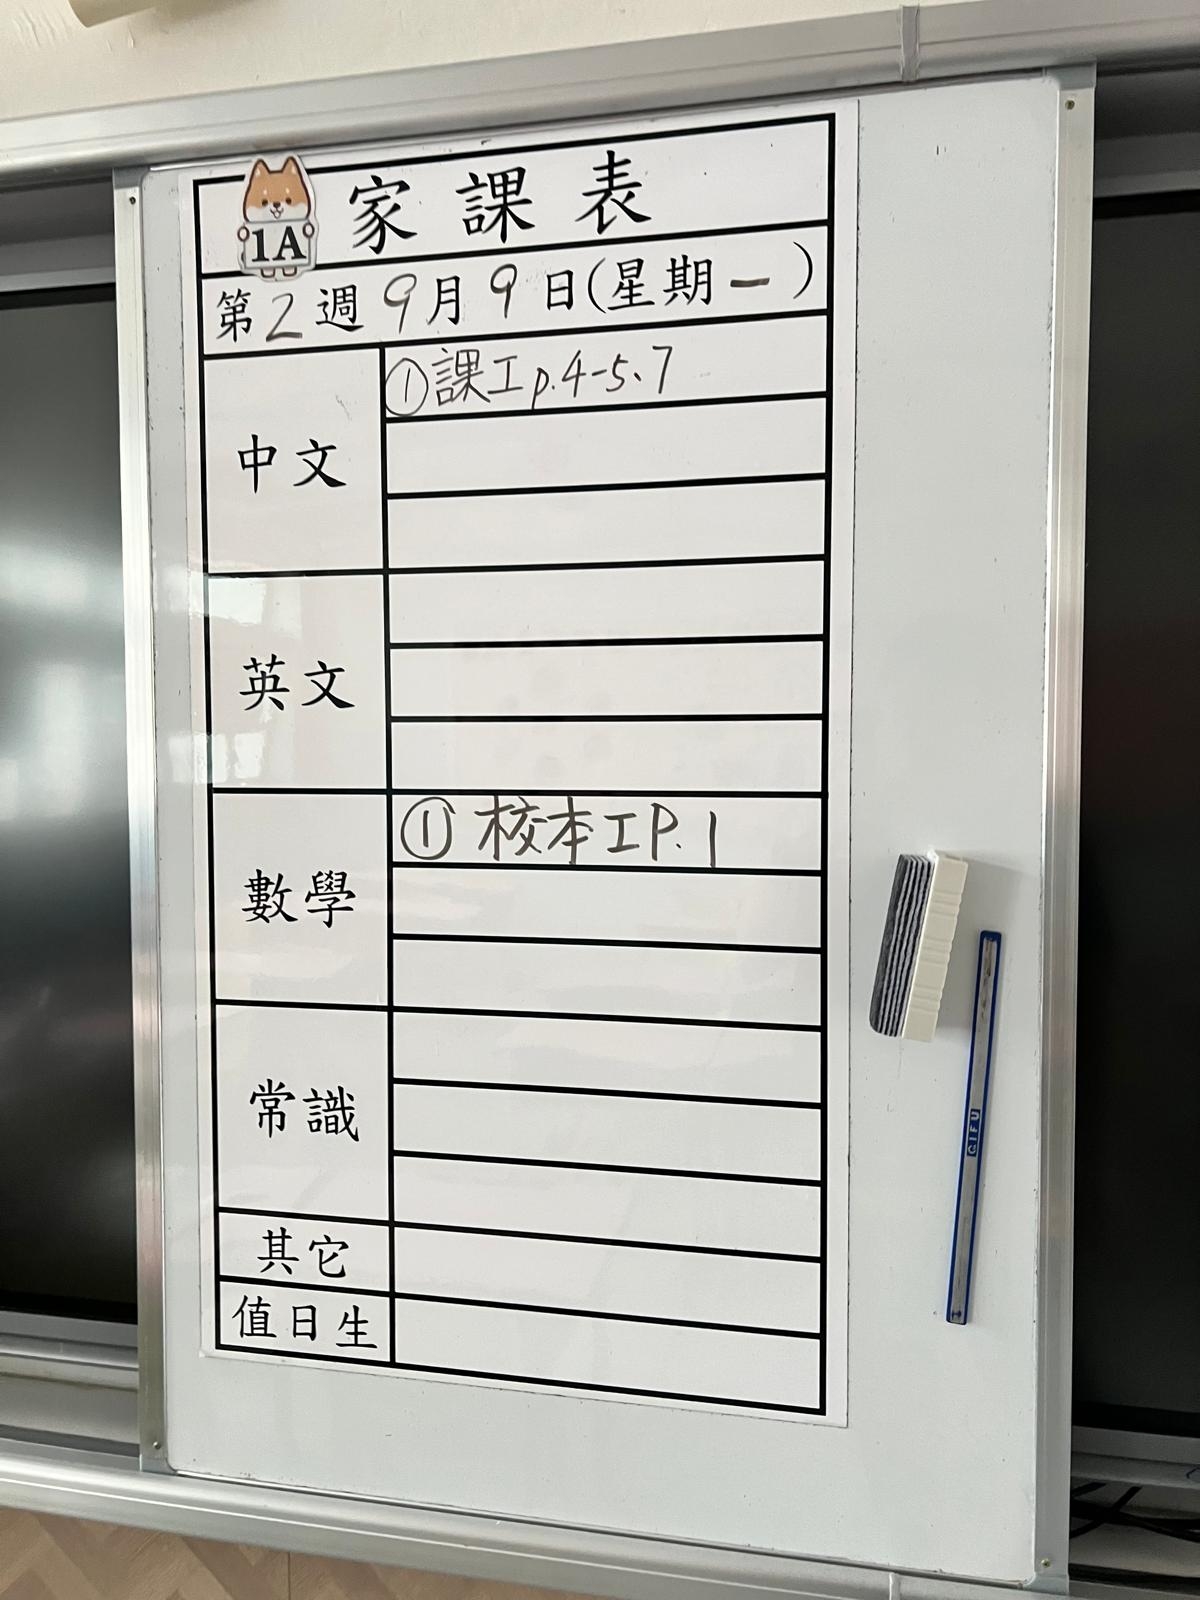 1A 家課表
第2週9月9日(星期一)
中文
①課工p.4-5、7
英文
數學
①校本工P.1
常識
其它
值日生
GIFU